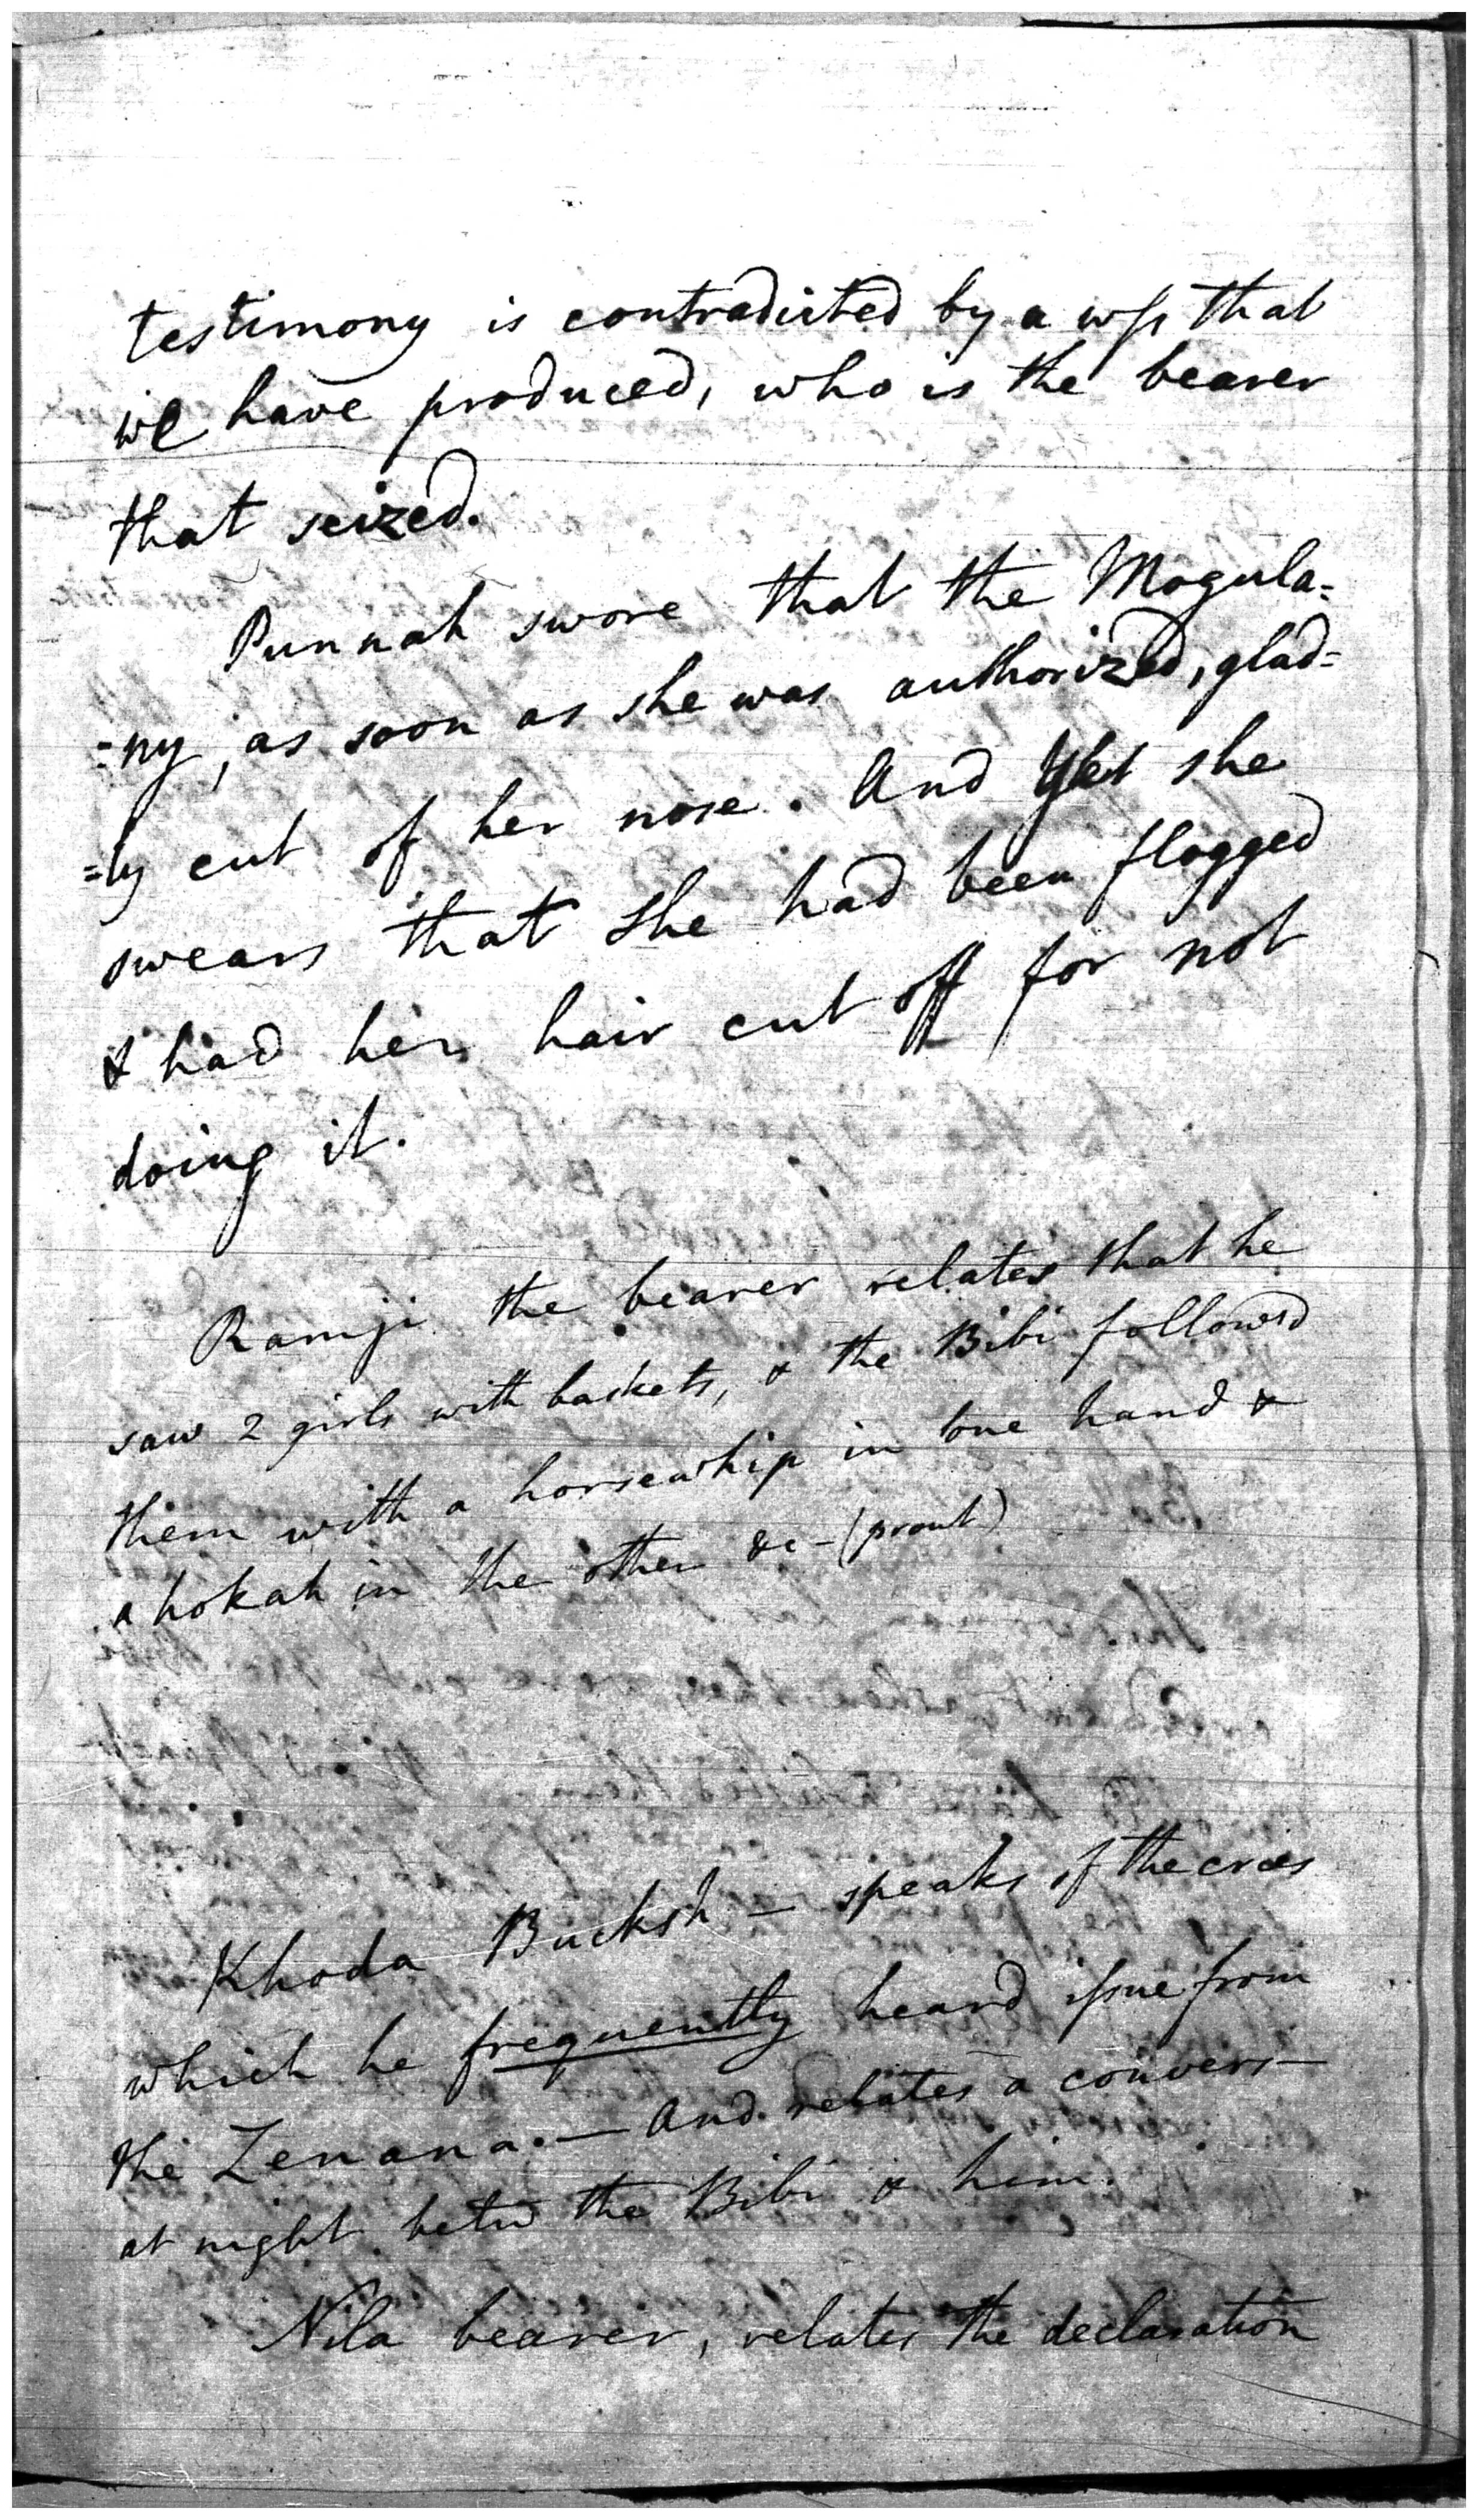 testimony is contradicted by a wss that
we have produced, who is the bearer
that seized.
Punnah swore that the Mogula=
=ny, as soon as she was authorized, glad=
=ly cut of her nose. And Yet she
swears that she had been flogged
& had her hair cut off for not
doing it.
Ramji the bearer relates that he
saw 2 girls with baskets, & the Bibi follow'd
them with a horsewhip in one hand &
a hokah in the other &c - (prout)
Khoda Bucksh - speaks of the cries
which he frequently heard issue from
the Zenana. - And relates a convers-
at night betw the Bibi & him.
Nila bearer, relates the declaration